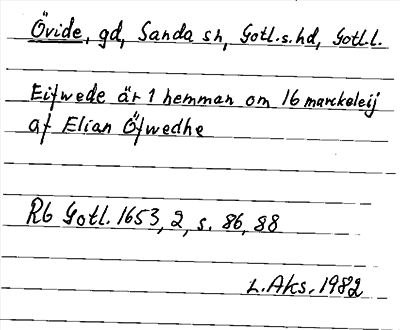 Övide, gd, Sanda sn, Gotl.s.hd, Gotl.l.
Eifwede är 1 hemman om 16 marckeleij
af Elian Öfwedhe
Rb Gotl. 1653, 2, s. 86, 88
L. Aks. 1982